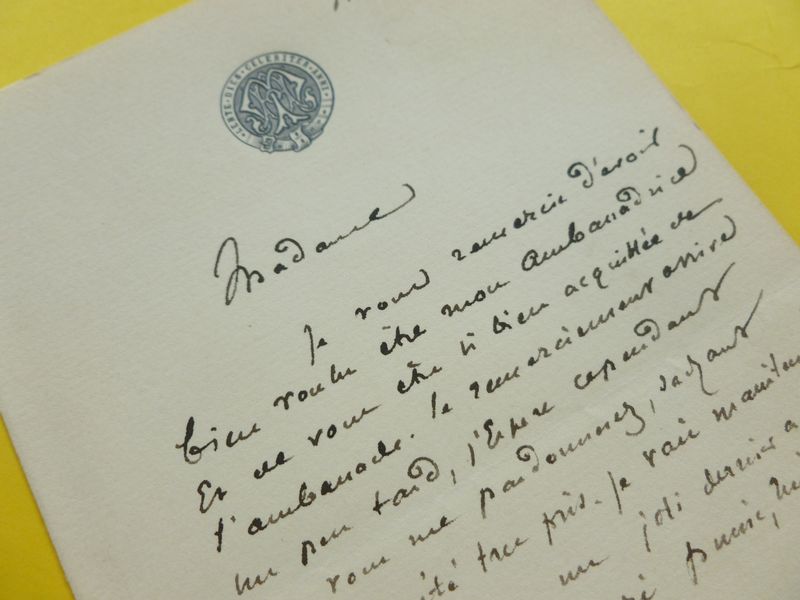 LENTE DIES CELERITER ANNI
Madame
Je vous remercie d'avoir
bien voulu être mon ambassadrice
Et de vous être si bien acquittée de
l'ambassade. Ce remerciement arrive
un peu tard, j'Espère cependant
vous me pardonnerez, sachant
été très pris. Je vais mainten
un joli dernier a
puisse,